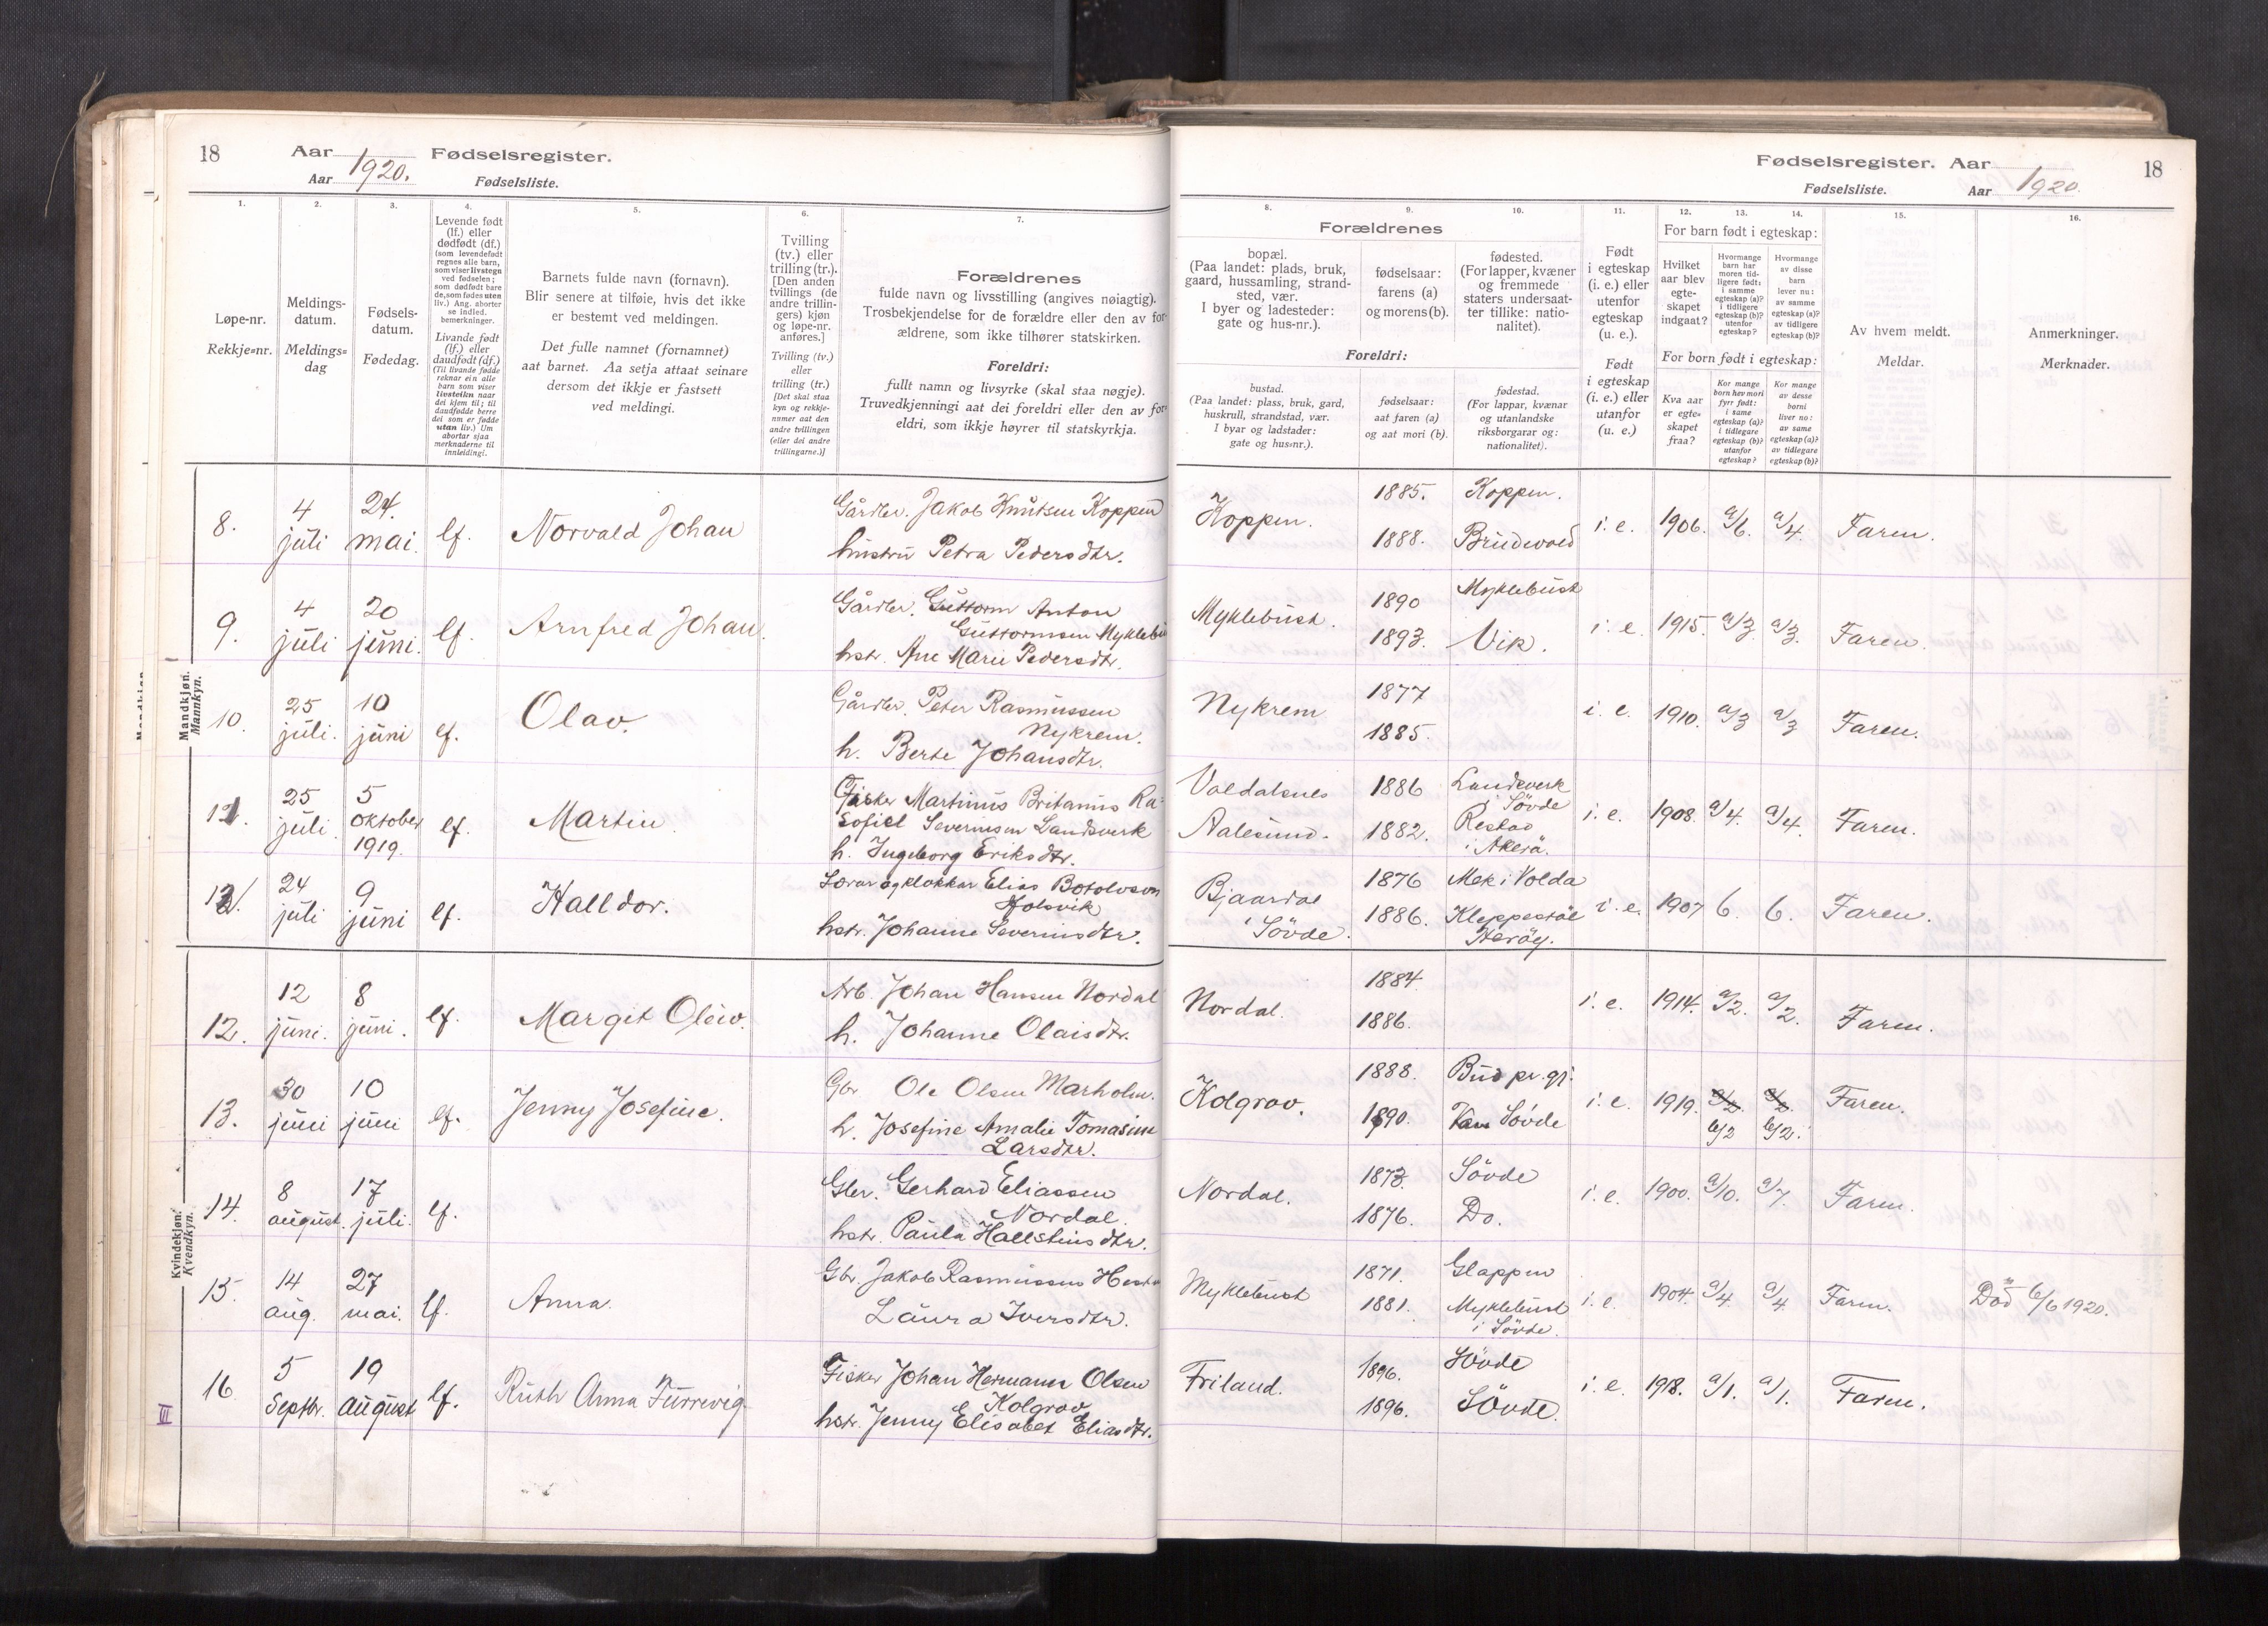 18 Aar 1920. Fødselsregister.
Aar Fødselsliste.
Fødselsregister. Aar 1920. 18
Fødselsliste. Aar
1. 2. 3. 4. 5. 6. 7. 8. 9. 10. 11. 12. 13. 14. 15. 16.
Løpe-nr.
Rekkje=nr.
Meldings-
datum.
Meldings=
dag
Fødsels-
datum.
Fødedag.
Levende født
(lf.) eller
dødfødt (df.)
(som levendefødt
regnes alle barn,
som viser livstegn
ved fødselen;
som dødfødt bare
de, som fødes uten
liv.) Ang. aborter
se indled.
bemerkninger.
Livande født
(lf.) eller
daudfødt (df.)
(Til livande fødde
reknar ein alle
barn som viser
livsteikn naar
dei kjem til; til
daudfødde berre
dei som er fødde
utan liv.) Um
abortar sjaa
merknaderne til
innleidingi.
Barnets fulde navn (fornavn).
Blir senere at tilføie, hvis det ikke
er bestemt ved meldingen.
Det fulle namnet (fornamnet)
aat barnet. Aa setja attaat seinare
dersom det ikkje er fastsett
ved meldingi.
Tvilling
(tv.) eller
trilling (tr.).
[Den anden
tvillings (de
andre trillin-
gers) kjøn
og løpe-nr.
anføres.]
Tvilling (tv.)
eller
trilling (tr.)
[Det skal staa
kyn og rekkje-
numer aat den
andre tvillingen
(eller dei andre
trillingarne.)]
Forældrenes
fulde navn og livsstilling (angives nøiagtig).
Trosbekjendelse for de forældre eller den av for-
ældrene, som ikke tilhører statskirken.
Foreldri:
fullt namn og livsyrke (skal staa nøgje).
Truvedkjenningi aat dei foreldri eller den av for-
eldri, som ikkje høyrer til statskyrkja.
Forældrenes
bopæl.
(Paa landet: plads, bruk,
gaard, hussamling, strand-
sted, vær.
I byer og ladesteder:
gate og hus-nr.).
fødselsaar:
farens (a)
og morens (b).
fødested.
(For lapper, kvæner
og fremmede
staters undersaat-
ter tillike: natio-
nalitet).
Foreldri:
bustad.
(Paa landet: plass, bruk, gard,
huskrull, strandstad, vær.
I byar og ladstader:
gate og hus=nr.).
fødselsaar:
aat faren (a)
og aat mori (b).
fødestad.
(For lappar, kvænar
og utanlandske
riksborgarar og:
nationalitet).
Født
i egteskap
(i. e.) eller
utenfor
egteskap
(u. e.).
Født
i egteskap
(i. e.) eller
utanfor
(u. e.)
For barn født i egteskap:
Hvilket
aar blev
egte-
skapet
indgaat?
Hvormange
barn har
moren tid-
ligere født:
i samme
egteskap (a)?
i tidligere
egteskap (b)?
utenfor
egteskap?
Hvormange
av disse
barn
lever nu:
av samme
egteskap (a)?
av tidligere
egteskap (b)?
For born født i egteskap:
Kva aar
er egte=
skapet
fraa?
Kor mange
born hev mori
fyrr født:
i same
egteskap (a)?
i tidlegare
egteskap (b)?
utanfor
egteskap?
Kor mange
av desse
borni
liver no:
av same
egteskap (a)?
av tidlegare
egteskap (b)?
Av hvem meldt.
Meldar.
Anmerkninger.
Merknader.
Mandkjøn.
Mannkyn.
8. 4 juli 24. mai. lf. Norvald Johan Gårdbr. Jakob Knutsen Koppen
hustru Petra Pedersdtr.
Koppen. 1885. Koppen. 1888. Brudevold i. e. 1906. a/6. a/4. Faren.
9. 4 juli 20 juni. lf. Arnfred Johan. Gårdbr. Guttorm Anton
Guttormsen Myklebu
hstr. Ane Marie Pedersdtr.
Myklebust. 1890 Myklebust 1893. Vik. i. e. 1915. a/3. a/3. Faren.
10. 25 juli. 10 juni lf. Olav. Gårdbr. Peter Rasmussen
Nykrem.
h. Berte Johansdtr.
Nykrem 1877 1885. i. e. 1910. a/3 a/3 Faren.
11. 25 juli. 5 oktober 1919. lf. Martin. Fisker Martinus Britanus Ra-
Sofiel Severinsen Landsverk
h. Ingeborg Eriksdtr.
Valdalsnes Aalesund. 1886 Landsverk i Sövde 1882. Restad i Akerö. i. e. 1908. a/4. a/4. Faren.
12. 24 juli 9 juni lf. Halldor. Lærar og klokkar Elias Botolvson
Holsvik
hstr. Johanne Severinsdtr.
Bjaardal i Sövde. 1876 Mek i Volda 1886. Kleppestöl Heröy. i. e. 1907 6. 6. Faren.
Kvindekjøn.
Kvendkyn.
12. 12 juni. 8 juni. lf. Margit Oleiv. Arb. Johan Hansen Nordal
h. Johanne Olaisdtr.
Nordal. 1884. 1886. i. e. 1914. a/2. a/2. Faren.
13. 30 juni 10 juni lf. Jenny Josefine. Gbr Ole Olsen Marholm.
h. Josefine Amalie Tomasine
Larsdtr.
Kolgrov. 1888. Bud pr.gj. 1890. Sövde i. e. 1919. a/2. a/2. b/2 b/2. Faren.
14. 8 august. 17 juli. lf. Gbr. Gerhard Eliassen
Nordal.
hstr. Paula Hallsteinsdtr.
Nordal. 1873. Sövde 1876. Do. i. e. 1900. a/10. a/7. Faren.
15. 14 aug. 27 mai. lf. Anna. Gbr. Jakob Rasmussen
Laura Iversdtr.
Myklebust 1871. Glappen 1881. Myklebust i Sövde. i. e. 1904. a/4. a/4 Faren. Död 6/6 1920.
16. 5 Septbr. 19 august lf. Ruth Anna Furrevig Fisker Johan Hermann Olsen
Kolgrov
hstr. Jenny Elisabet Eliasdtr.
Friland. 1896. Sövde 1896. Sövde. i. e. 1918. a/1. a/1. Faren.